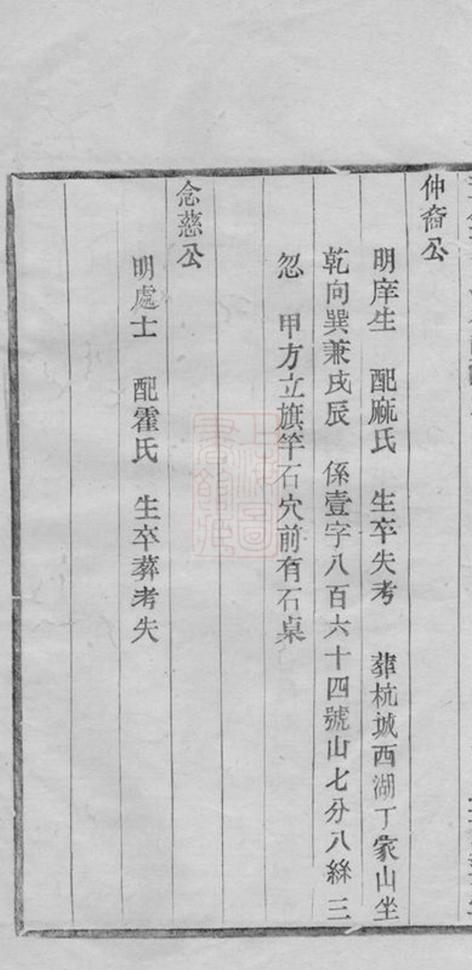 仲裔公
明庠生　配麻氏　生卒失考　葬杭城西湖丁家山坐
乾向巽兼戌辰　係壹字八百六十四號山七分八絲三
忽　甲方立旗竿石穴前有石桌
念慈公
明處士　配霍氏　生卒葬考失
上海圖書館藏